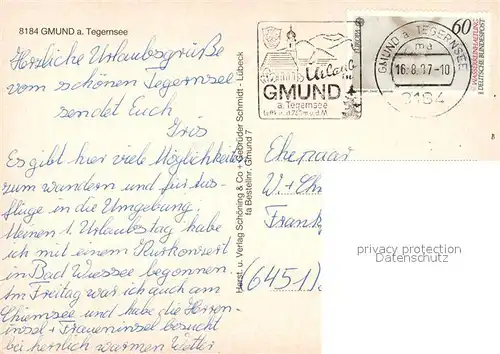 8184 GMUND a. Tegernsee
Herzliche Urlaubsgrüße
vom schönen Tegernsee
sendet Euch
Iris
Es gibt hier viele Möglichkeiten
zum wandern und für Aus-
flüge in die Umgebung.
Meinen 1. Urlaubstag habe
ich mit einem Kurkonzert
in Bad Wiessee begonnen.
Am Freitag war ich auch am
Chiemsee und habe die Herren-
insel + Fraueninsel besucht
bei herrlich warmen Wetter
Horst. u. Verlag Schöning & Co + Gebrüder Schmidt - Lübeck
fa Bestellnr. Gmund 7
Urlaub
in
GMUND
a. Tegernsee
GMUND a. TEGERNSEE
ma
16.-8.87-10
8184
60
DEUTSCHE BUNDESPOST
Ehepaar
W. + Ch
Frank
(6451)
privacy protection
Datenschutz